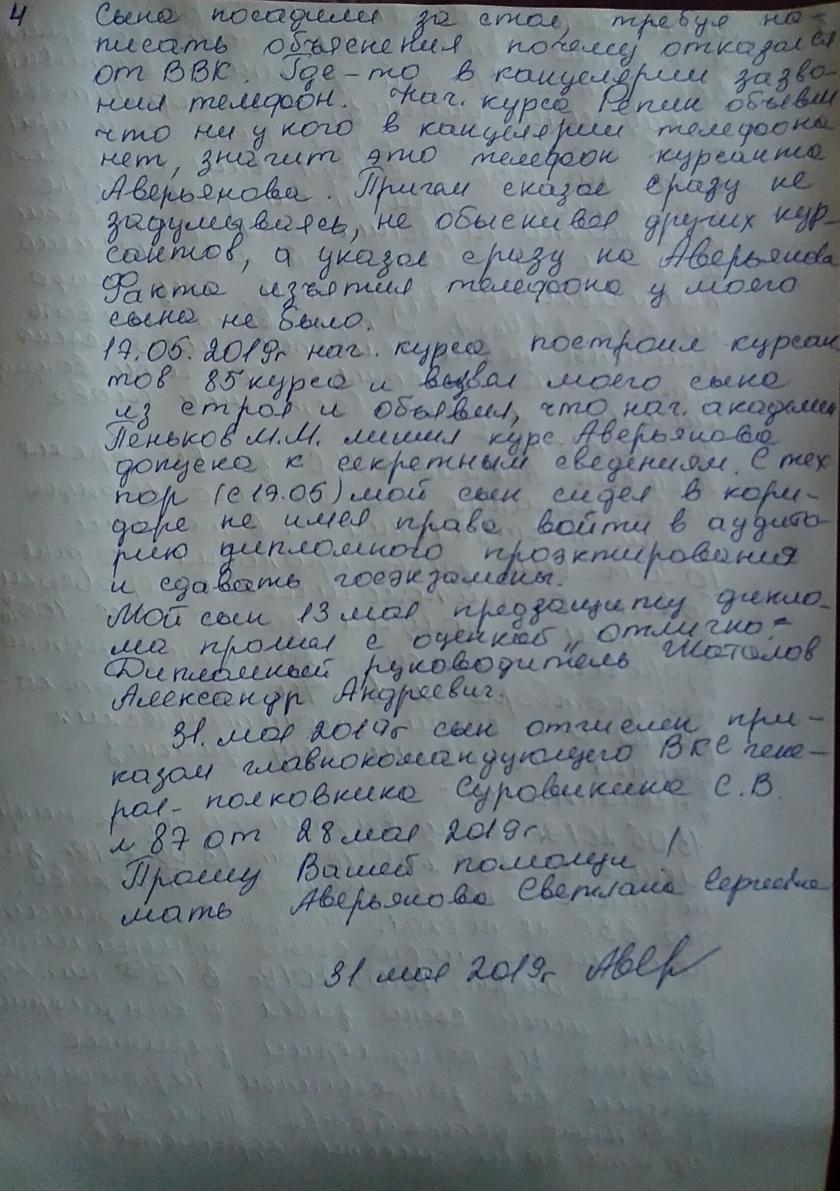 4
Сына посадили за стол, требуя на-
писать объяснения почему отказался
от ВВК. Где-то в канцелярии зазво-
нил телефон. Нач. курса Репин объявил
что ни у кого в канцелярии телефона
нет, значит это телефон курсанта
Аверьянова. Причем сказал сразу не
задумываясь, не обыскивая других кур-
сантов, а указал сразу на Аверьянова
Факта изъятия телефона у моего
сына не было.
17.05.2019г нач. курса построил курсан
тов 85 курса и вызвал моего сына
из строя и объявил, что нач. академии
Пеньков М.М. лишил курс. Аверьянова
допуска к секретным сведениям. С тех
пор (с 17.05) мой сын сидел в кори-
доре не имея права войти в аудито-
рию дипломного проэктирования
и сдавать госэкзамены.
Мой сын 13 мая предзащиту дипло-
ма прошел с оценкой „отлично"
Дипломный руководитель Шаталов
Александр Андреевич.
31. мая 2019г сын отчислен при-
казом главнокомандующего ВКС гене-
рал-полковника Суровикина С.В.
№ 87 от 28 мая 2019г.
Прошу Вашей помощи /
мать Аверьянова Светлана Сергеевна
31 мая 2019г Авер